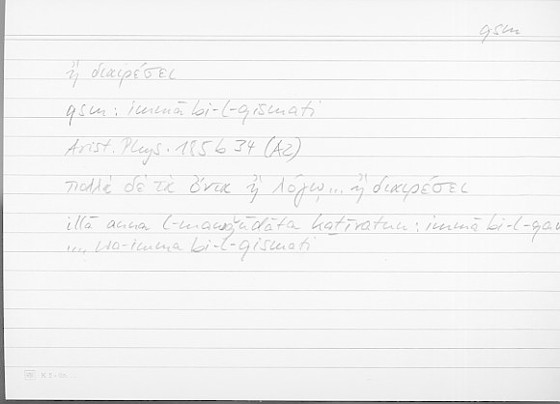 qsm
ἢ διαιρέσει
qsm: immā bi-l-qismati
Arist. Phys. 185 b 34 (A2)
πολλὰ δὲ τὰ ὄντα ἢ λόγῳ... ἢ διαιρέσει
illā anna l-mawǧūdāta kaṯīratun: immā bi-l-qaw
... wa-immā bi-l-qismati